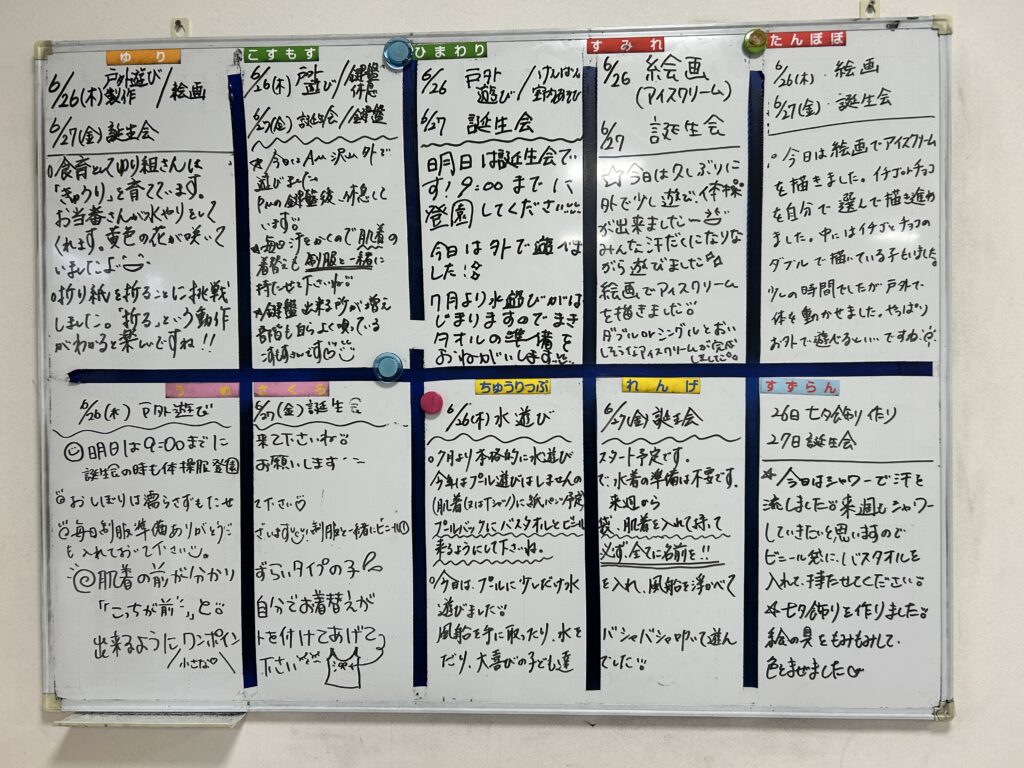 ゆり
6/26(木) 戸外遊び/絵画
製作
6/27(金) 誕生会
○食育としてゆり組さんは
「きゅうり」を育てています。
お当番さんが水やりをして
くれます。黄色の花が咲いて
いましたよ
○折り紙を折ることに挑戦
しました。"折る"という動作
がわかると楽しいですね!!
こすもす
6/26(木) 戸外遊び/鍵盤 休息
6/27(金) 誕生会/鍵盤
☆今日はAM 沢山外で
遊びました
PMの鍵盤後、休息して
います。
☆毎日汗をかくので肌着の
着替えも制服と一緒に
持たせて下さいね
☆鍵盤出来る所が増え
ひまわり
6/26 戸外遊び/けんばん 室内あそび
6/27 誕生会
明日は誕生会で
す!9:00までに
登園してください
今日は外で遊べま
した!
7月より水遊びがは
じまりますのでまき
タオルの準備を
おねがいします
すみれ
6/26 絵画
(アイスクリーム)
6/27 誕生会
☆今日は久しぶりに
外で少し遊び、体操
が出来ました〜
みんな汗だくになりな
がら遊びました
絵画でアイスクリーム
を描きました
ダブルorシングルとおい
しそうなアイスクリームが完成
しました。
たんぽぽ
6/26(木) . 絵画
6/27(金) . 誕生会
○今日は絵画でアイスクリーム
を描きました。イチゴとチョコ
を自分で選んで描き進め
ました。中にはイチゴとチョコの
ダブルで描いている子もいました。
少しの時間でしたが戸外で
体を動かせました。やっぱり
お外で遊べるといい…ですね
うめ
さくら
6/26(木) 戸外遊び 6/27(金) 誕生会
明日は9:00までに来て下さいね
誕生会の時も体操服登園お願いします
おしぼりは濡らさずもたせて下さい
毎日制服準備ありがとうございます 制服と一緒にビニール
も入れておいて下さい。
肌着の前が分かりずらいタイプの子
「こっちが前」と自分でお着替えが
出来るようにワンポイントを付けてあげて
小さな 下さい
ちゅうりっぷ
れんげ
6/26(木) 水遊び 6/27(金) 誕生会
○7月より本格的に水遊びスタート予定です。
今年はプール遊びはしませんので、水着の準備は不要です。
(肌着(又はTシャツ)に紙パンツ予定) 来週から
プールバックにバスタオルとビニール袋、肌着を入れて持って
来るようにして下さいね。必ず全てに名前を!!
○今日は、プールに少しだけ水を入れ、風船を浮かべて
遊びました
風船を手に取ったり、水をバシャバシャ叩いて遊ん
だり、大喜びの子ども達でした
すずらん
26日 七夕飾り作り
27日 誕生会
☆今日はシャワーで汗を
流しました 来週もシャワー
していきたいと思いますので
ビニール袋に、バスタオルを
入れて、持たせてください
☆七夕飾りを作りました
絵の具をもみもみして、
色をまぜました